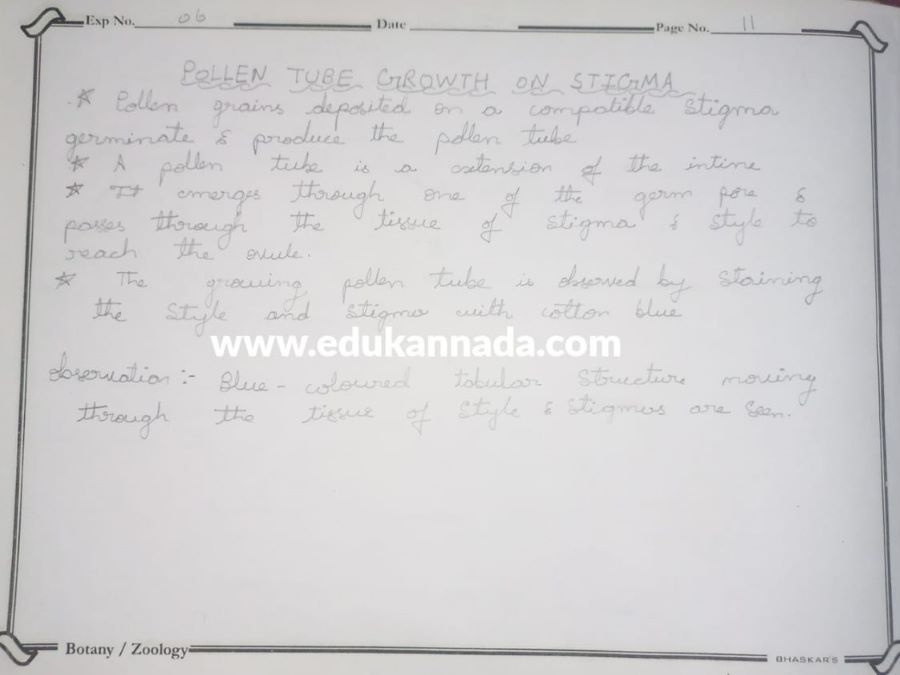 Exp No. 06 Date Page No. 11
POLLEN TUBE GROWTH ON STIGMA
* Pollen grains deposited on a compatible stigma
germinate & produce the pollen tube
* A pollen tube is a extension of the intine
* It emerges through one of the germ pore &
passes through the tissue of stigma & style to
reach the ovule.
* The growing pollen tube is observed by staining
the style and stigma with cotton blue
www.edukannada.com
Observation :- Blue - coloured tobular structure moving
through the tissue of style & stigmas are seen.
Botany / Zoology
BHASKAR'S